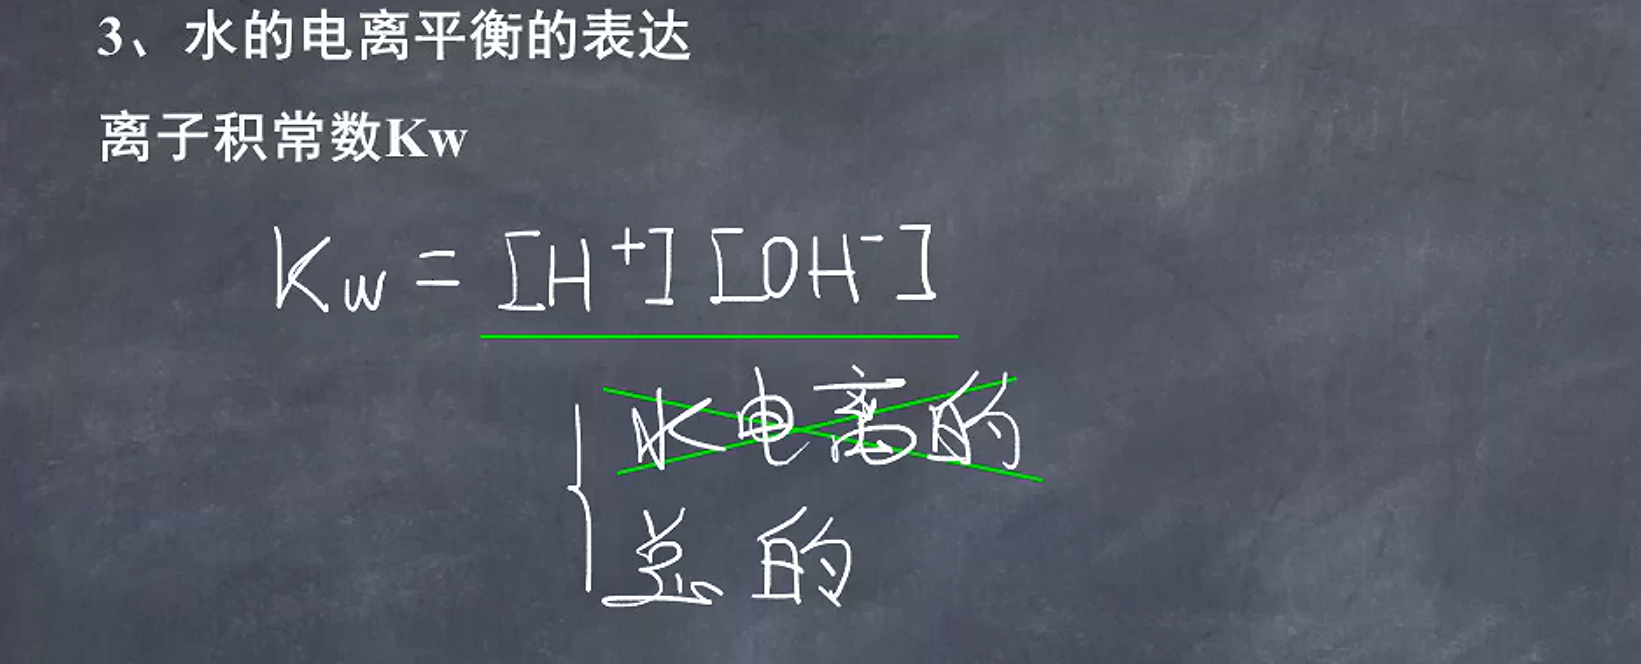 3、水的电离平衡的表达
离子积常数Kw
Kw = [H⁺][OH⁻]
水电离的
总的